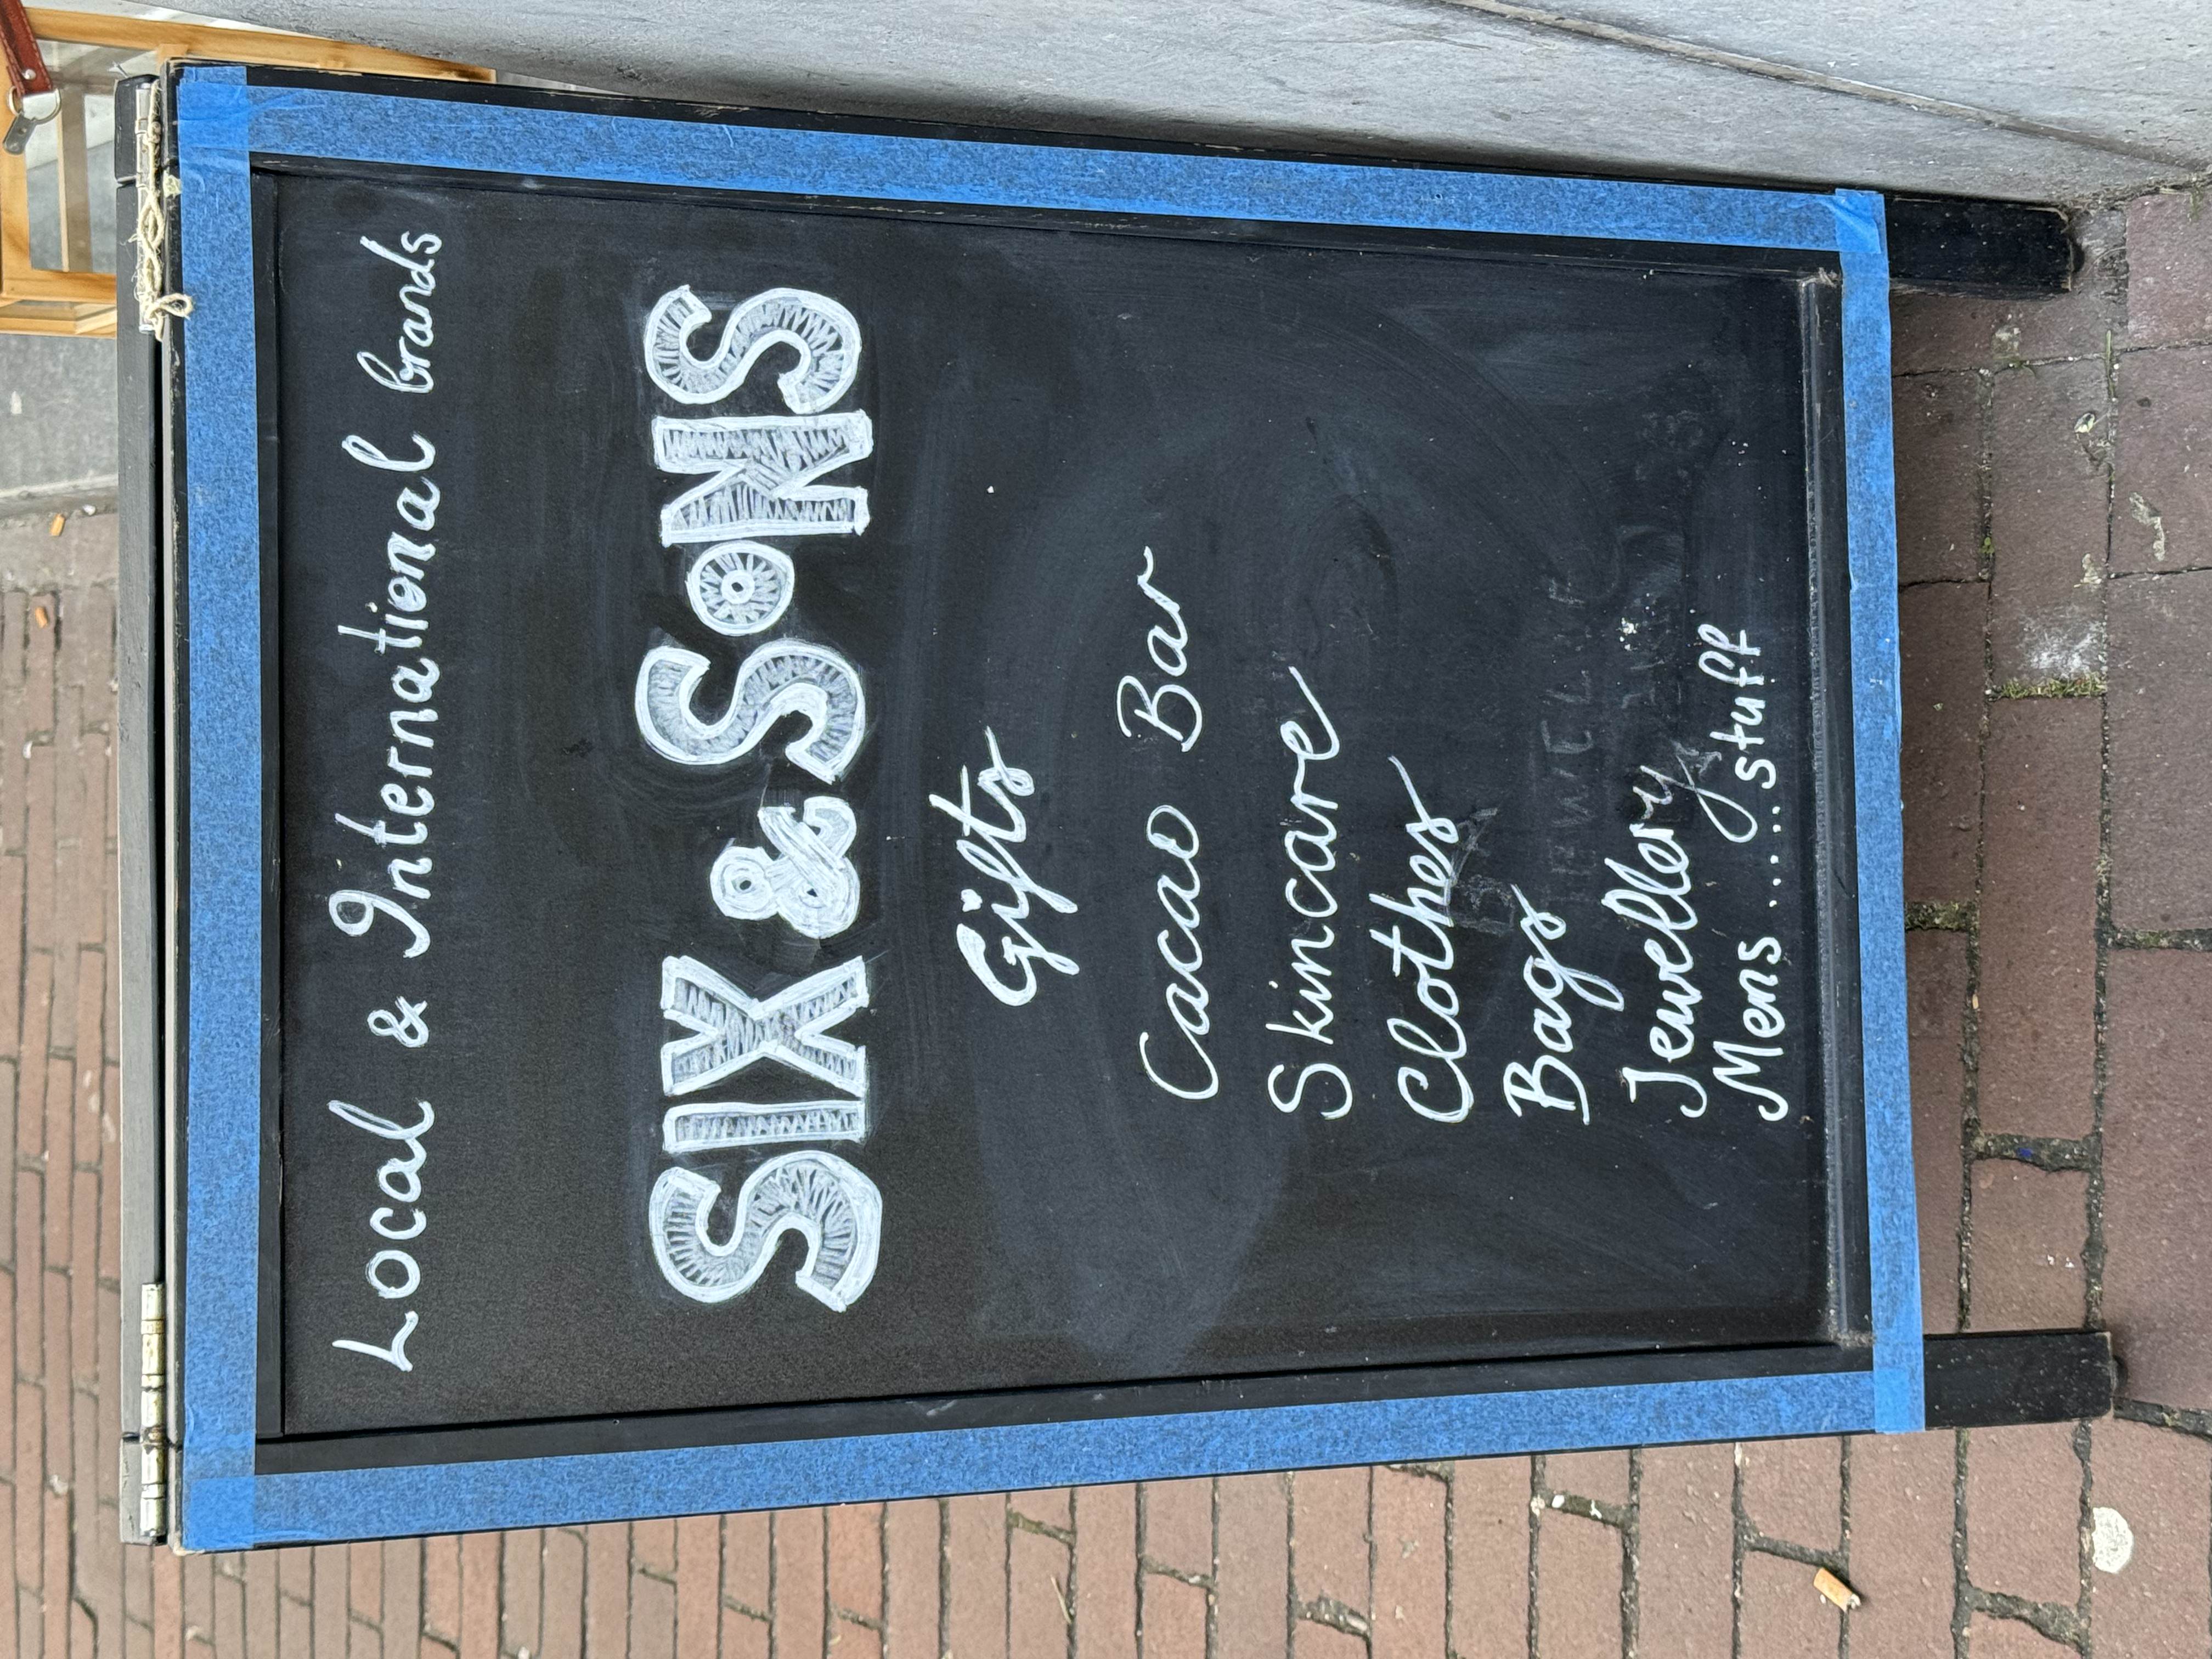 Local & International brands
SIX & SONS
Gifts
Cacao Bar
Skincare
Clothes
Bags
Jewellery
Mens ..... stuff